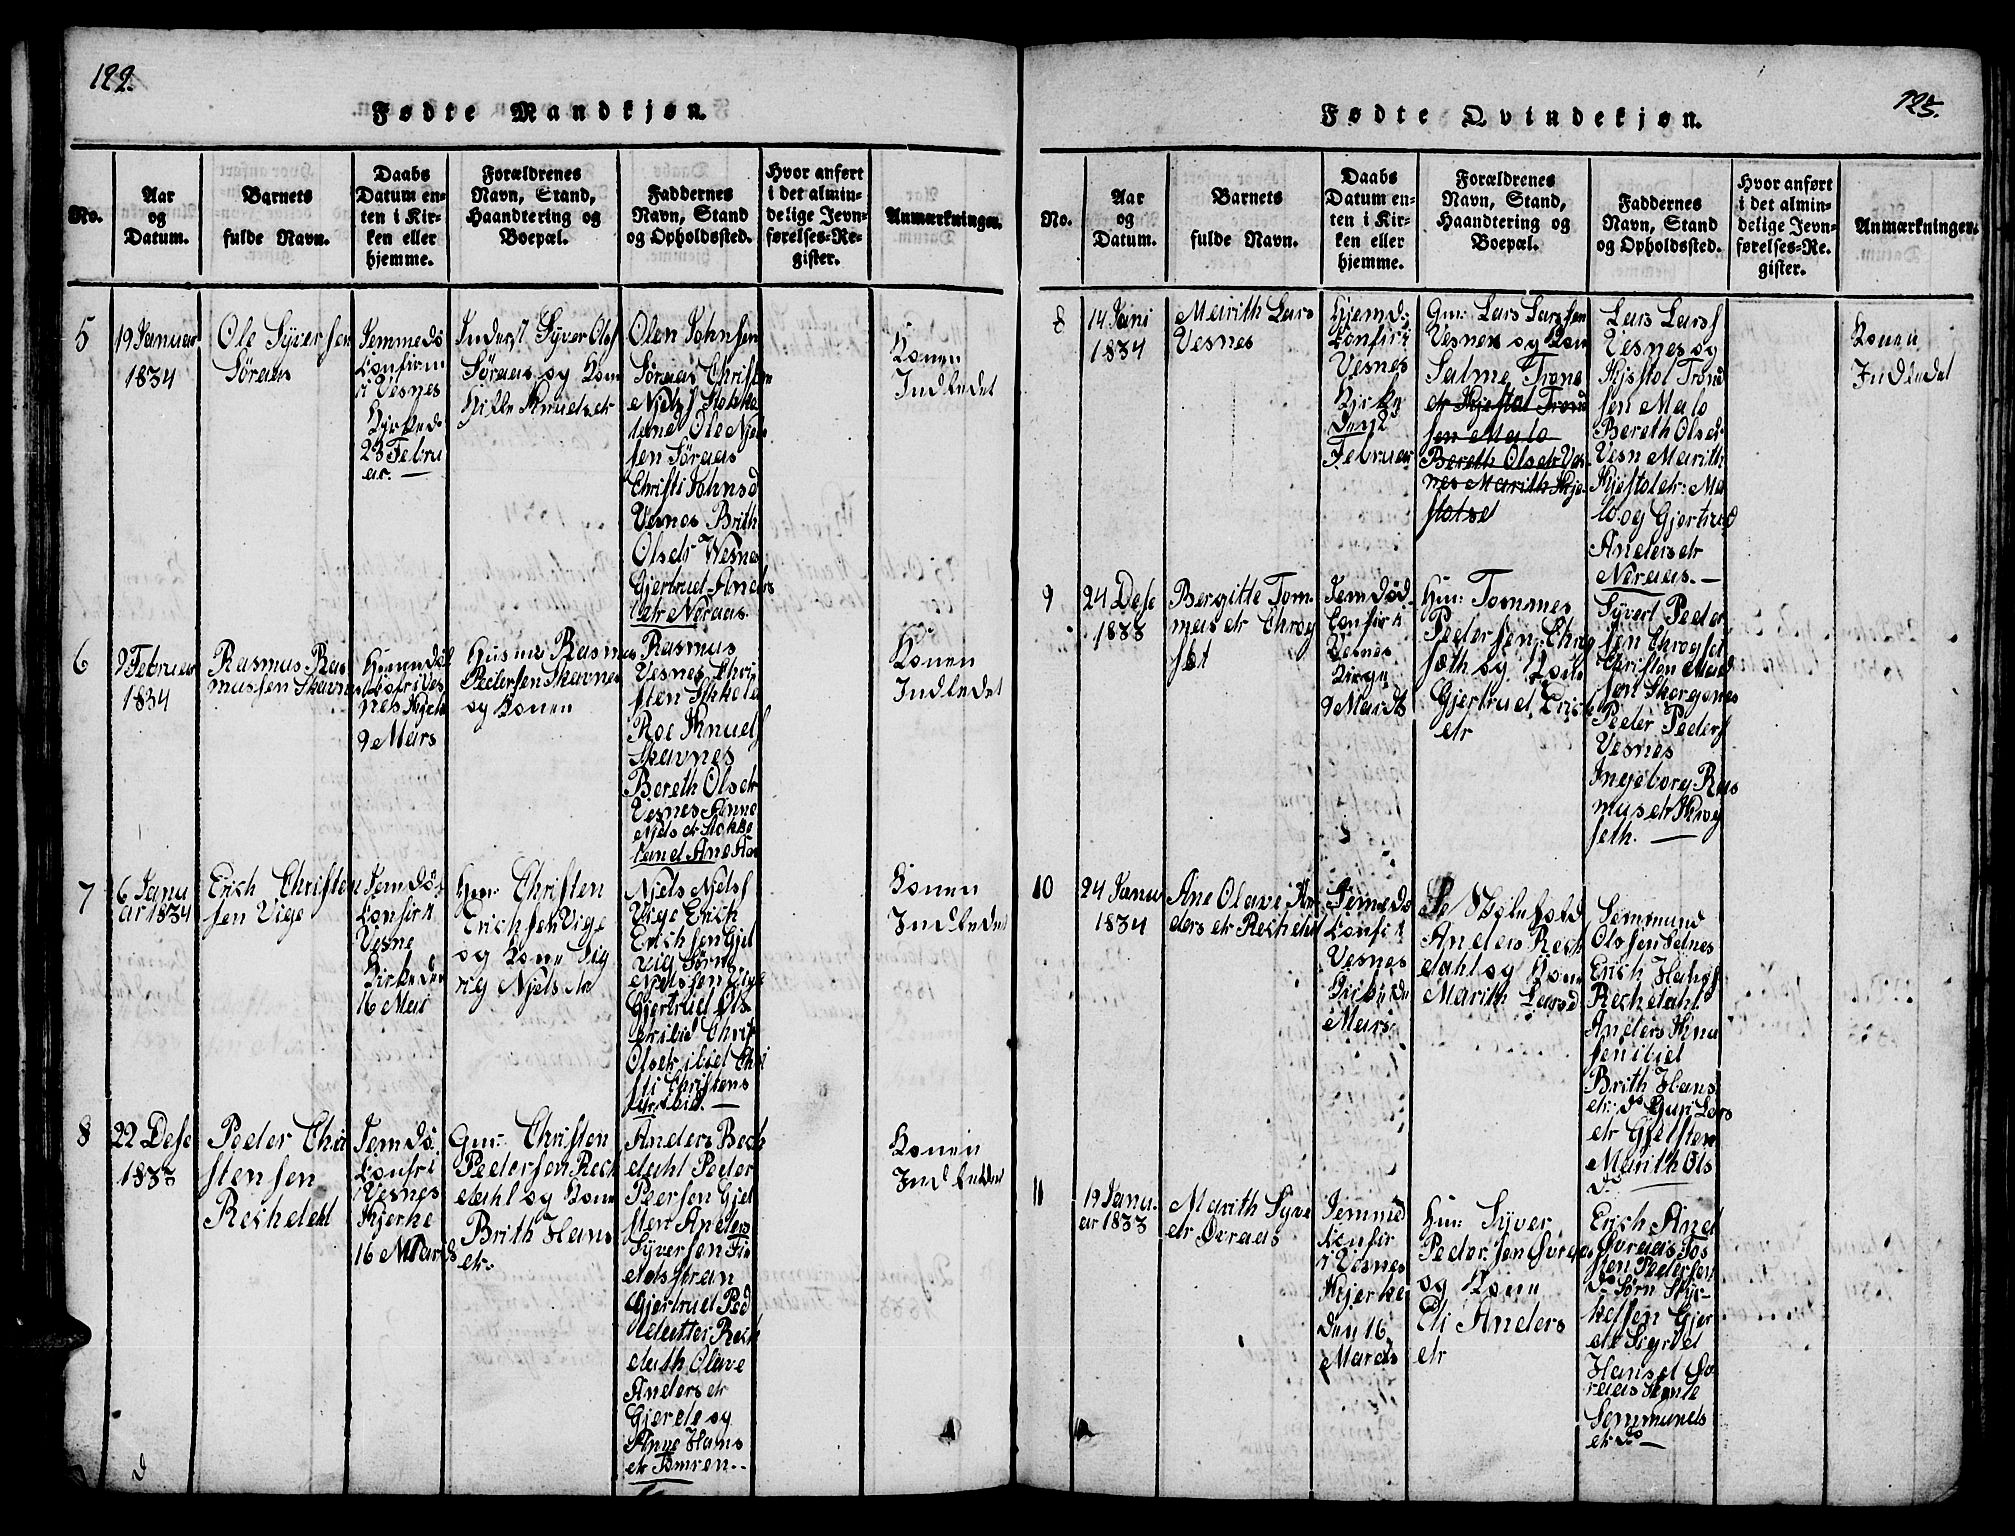 122.
Fødte Mandkjøn.
No.
Aar
og
Datum.
Barnets
fulde Navn.
Daabs
Datum en-
ten i Kir-
ken eller
hjemme.
Forældrenes
Navn, Stand,
Haandtering og
Boepæl.
Faddernes
Navn, Stand
og Opholdssted.
Hvor anført
i det almin-
delige Jevn-
førelses-Re-
gister.
Anmærkninger.
5
19 Januar
1834
Ole Syversen
Søraas
Jemmedø
Confirm
i Vesnes
Kirked
23 Febru
ar.
Inderst Syver Ols
Søraas og Kon
Knudsdr
Olen Johnsen
Søraas Christen
Niels Stokke
lane Ole Niel
sen Søraas
Christi Johnsd
Vesnes Brith
Olsdr Wesnes
Gjertrud Anders
datr Noraas
Konen
Indledet
6
2 Februar
1834
Rasmus Ras
mussen Skavnes
Hjemdøb
Cofri Ves
nes Kjerk
9 Mars
Husm Rasmus
Pedersen Skavnes
og Konen
Rasmus
Vesnes Chri
sten
Roe Knuds
Skavnes
Bereth Olsdr
Vesnes Anne
Niels dr Stokke
land Ane
Konen
Indledet
7
6 Janu
ar 1834
Erich Christen
sen Vige
Jemdø
Confir i
Vesne
Kirke den
16 Mars
Hm: Christen
Erichsen Vige
og Kone Sig
rig Niels dr
Niels Niels
Vige Erich
Erichsen Gjel
vig Sørne
Nielssen
Gjertrud Ols
dr ibid Christ
Olsdr ibid Chri
sti Christens
ibid.
Konen
Indledet
8
22 Dese
1833
Peder Chri
stensen
Rechdahl
Jemdø
Confri
i Vesnes
Kjerke
16 Marts
Gm: Christen
Pedersen Rech
dahl og Kone
Brith Hans
dr:
Anders Rech
dahl Peder
Peersen Gjel
sten Anders
Syversen Fi
Gjertrud Ped
datter Rech
dath Olave
Anders dr
Gjerde og
Anne Hans
dr
Konen
Indleddet
125.
Fødte Qvindekjøn.
No.
Aar
og
Datum.
Barnets
fulde Navn.
Daabs
Datum en-
ten i Kir-
ken eller
hjemme.
Forældrenes
Navn, Stand,
Haandtering og
Boepæl.
Faddernes
Navn, Stand
og Opholdssted.
Hvor anført
i det almin-
delige Jevn-
førelses-Re-
gister.
Anmærkninger.
8
14 Jani
1834
Marith Lars
Vesnes
Hjemdø
Confir i
Vesnes
Kirke
Den 2
Februar
Gm: Lars Larssen
Vesnes og Kon
Salme Trone
dr Kjestol Trond
sen Malo
Bereth Olsdr Ves
nes Marith Kje
stolsd
Lars Lars
Vesnes og
Kjestol Trond
sen Malo
Bereth Olsdr
Vesn Marith
Kjestoldr: Ma
lo og Gjertrud
Andersdr
Noraas.
Konen
Indledet
9
24 Dese
1833
Bergitte Tom
mas dr Chrog
set
Jemdød
Confir i
Vesnes
Kirge
9 Marts
Hm: Tommes
Pedersen Chrog
sæth og Kone
Gjertrud Erics
dr
Syvert Peder
sen Chrogset
Christen
sen Skorgenes
Peder Peders
Vesnes
Ingeborg Ras
musdr Krog
seth.
10
24 Janu
1834
Ane Olave An
ders dr Rechdal
Jemmedø
Confir i
Vesnes
Mars
Anders Rech
dahl og Kone
Marith Larsd
Semmund
Olssen Selnes
Erich Hans
Rechdahl
Anders Knu
sen ibid
Brith Hans
dr: do Guri Lars
dr Gjelsten
Marith Ols
do
11
19 Janu
ar 1833
Marith Syve
dr Øveraas
Jemmed
Confir
i Vesnes
Kjerke
Den 16
Marts
Hm: Syver
Pedersen
og Kone
Eli Anders
dr
Erich And
Øvraas Jos
sten Pedersen
do Sørn Skje
helsen Gjer
de Sigrid
Hansd Øv
raas
Semmunds
dr do